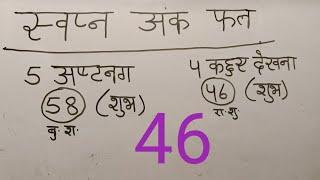 स्वप्न अंक फल
5 अष्टनग
58 (शुभ)
बु. श.
4 कद्दुर देखना
46 (शुभ)
रा. शु.
46